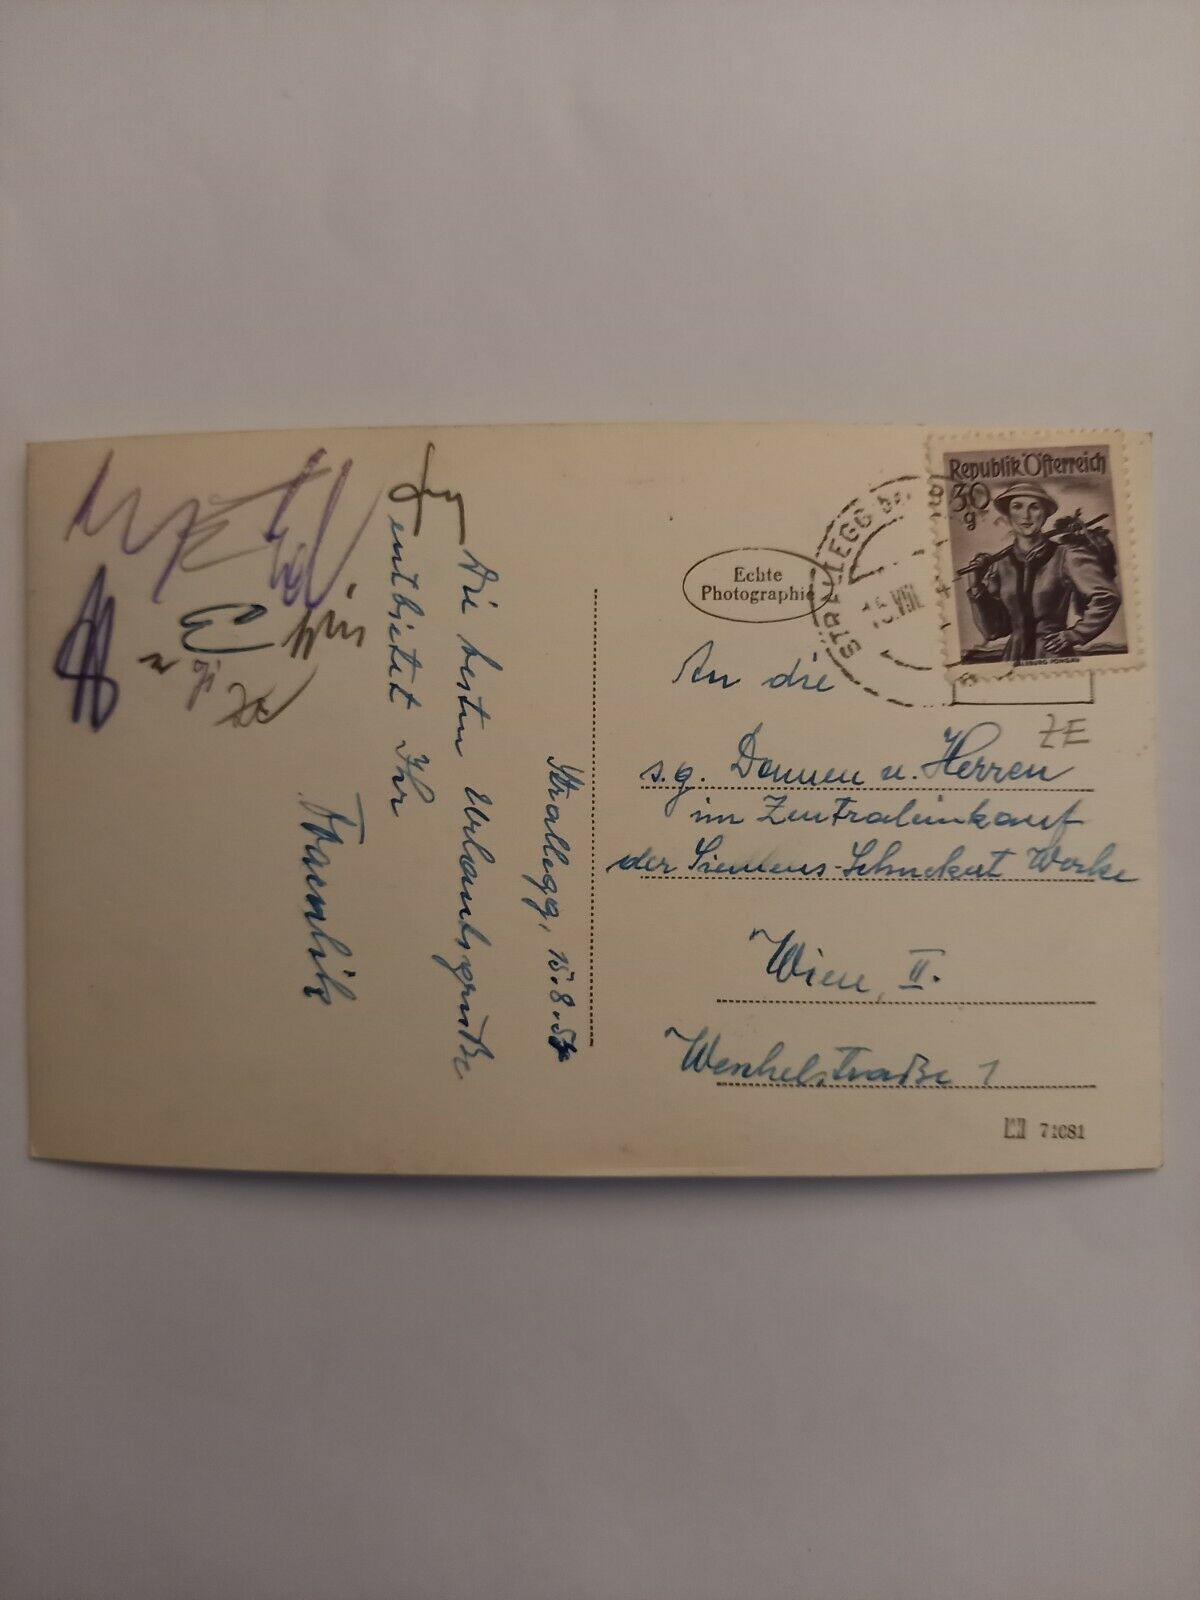 Strallegg, 15.8.5
Die besten Urlaubsgrüße
entbietet Ihr
Echte
Photographie
STRALLEGG
15. VIII.
Republik Österreich
30
g
SALZBURG PONGAU
An die
ZE
s.g. Damen u. Herren
im Zentraleinkauf
der Siemens-Schuckert Werke
Wien, II.
Wenhelstraße 1
71081